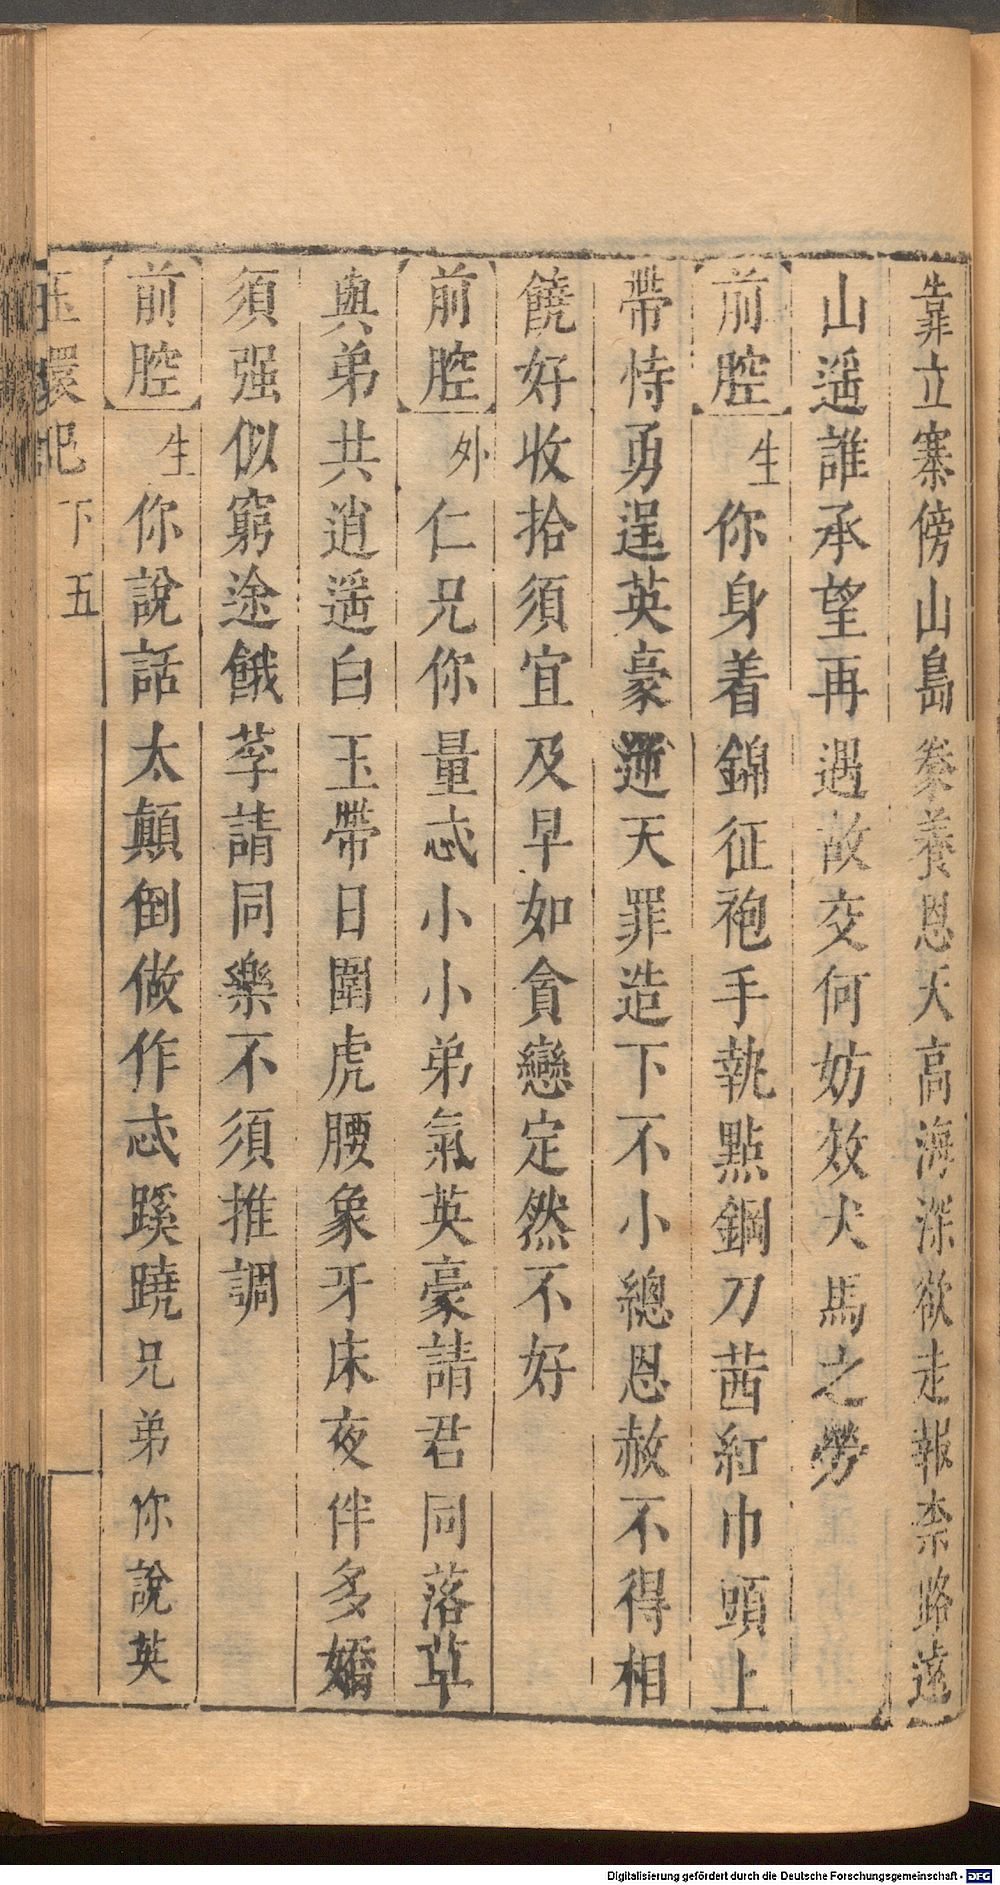 靠立寨傍山島豢養恩天高海深欲走報柰路遠
山遥誰承望再遇故交何妨效犬馬之勞
前腔 生 你身着錦征袍手執點鋼刀茜紅巾頭上
帶恃勇逞英豪逆天罪造下不小總恩赦不得相
饒好收拾須宜及早如貪戀定然不好
前腔 外 仁兄你量忒小小弟氣英豪請君同落草
與弟共逍遥白玉帶日圍虎腰象牙床夜伴多嬌
須强似窮途餓莩請同樂不須推調
前腔 生 你說話太顛倒做作忒蹊蹺兄弟你說英
玉環記 下 五
Digitalisierung gefördert durch die Deutsche Forschungsgemeinschaft - DFG